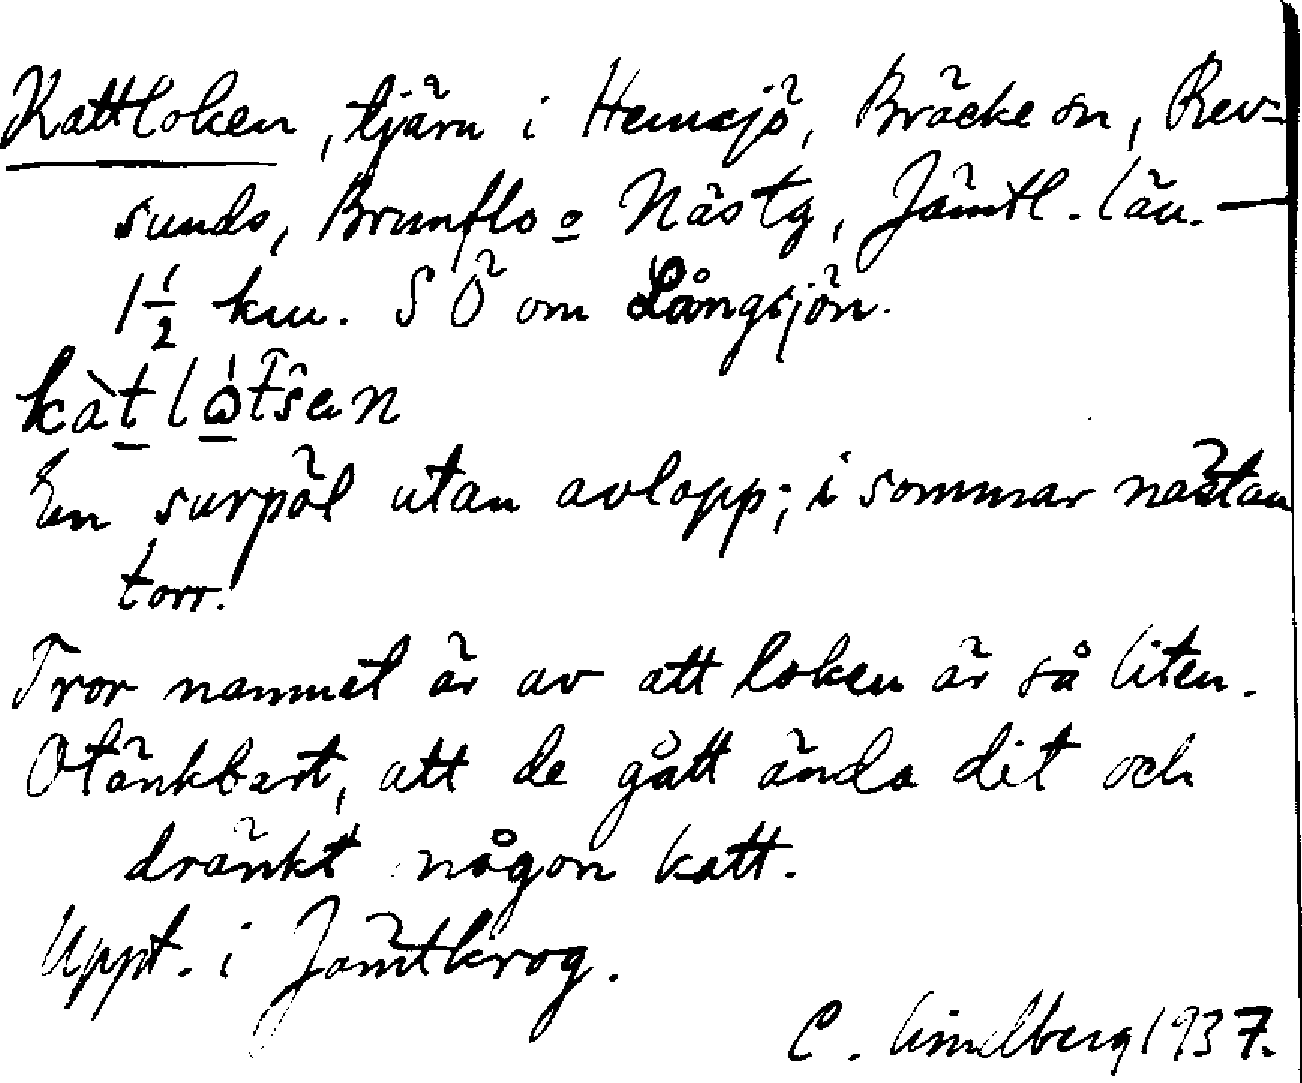 Kattloken, tjärn i Hemsjö, Bräcke sn, Rev=
sunds, Brunflo o Näs tg, Jämtl. län. —
1½ km. SÖ om Långsjön.
En surpöl utan avlopp; i sommar nästan
torr.
Tror namnet är av att loken är så liten.
Otänkbart, att de gått ända dit och
dränkt någon katt.
Uppt. i Jämtkrog.
C. Lindberg 1937.